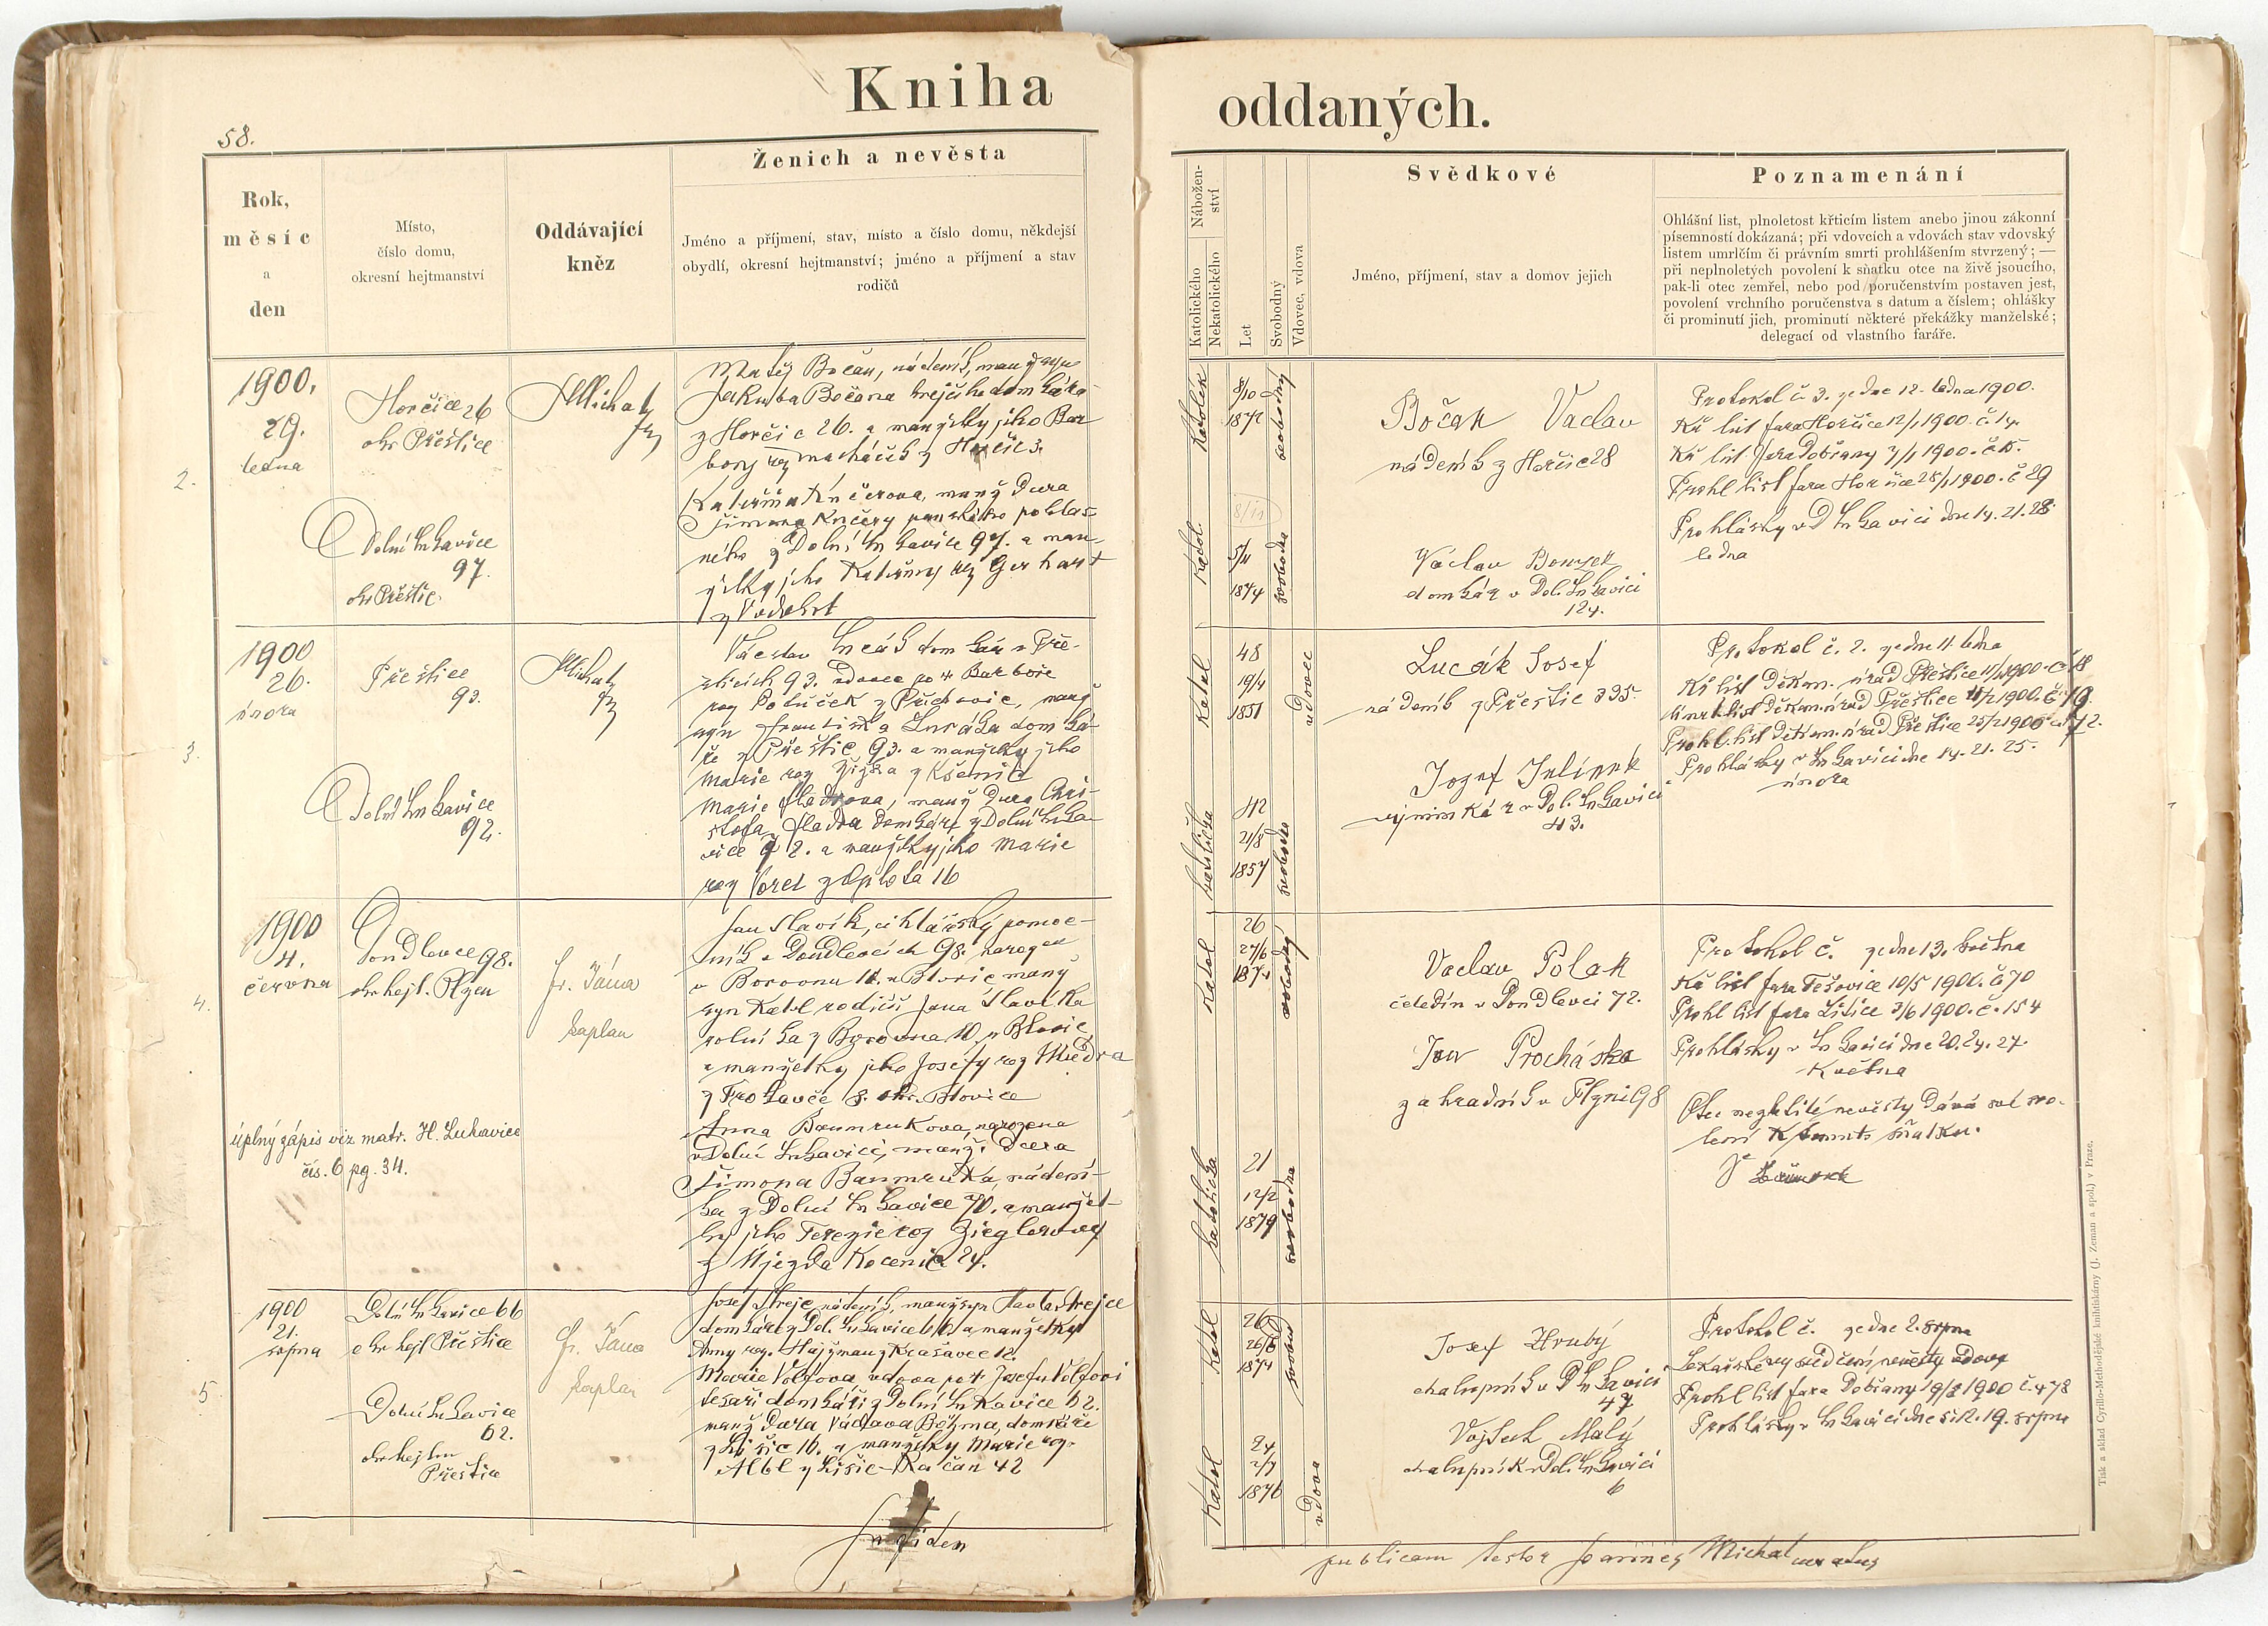 Kniha oddaných.
58.
Rok,
měsíc
a
den
Místo,
číslo domu,
okresní hejtmanství
Oddávající
kněz
Ženich a nevěsta
Jméno a příjmení, stav, místo a číslo domu, někdejší
obydlí, okresní hejtmanství; jméno a příjmení a stav
rodičů
Nábožen-
ství
Katolického
Nekatolického
Let
Svobodný
Vdovec, vdova
Svědkové
Jméno, příjmení, stav a domov jejich
Poznamenání
Ohlášní list, plnoletost křticím listem anebo jinou zákonní
písemností dokázaná; při vdovcích a vdovách stav vdovský
listem umrlčím či právním smrti prohlášením stvrzený; —
při neplnoletých povolení k sňatku otce na živě jsoucího,
pak-li otec zemřel, nebo pod poručenstvím postaven jest,
povolení vrchního poručenstva s datum a číslem; ohlášky
či prominutí jich, prominutí některé překážky manželské;
delegací od vlastního faráře.
2.
1900.
29.
ledna
Horčice 26
okr Přeštice
Dolní Lukavice
97.
okr Přeštic
JMichal
Matěj Bočan, nádeník, manž syn
Jakuba Bočana krejčího domkáře
z Horčic 26. a manželky jeho Bar
bory roz Macháček z Horčic 3.
Kateřina Kučerova, manž dcera
Šimona Kučery panského pohlas-
ného z Dolní Lukavice 97. a man-
želky jeho Kateřiny roz Gerhart
z Vodokrt
Katolík
8/10
1872
svobodný
Katol
5/11
1874
svobodna
Bočan Vaclav
nádeník z Horčic 28
Václav Bouzek
domkář v Dol. Lukavici
124.
Protokol č. 3. ze dne 12. ledna 1900.
Kř list fara Horčice 12/1 1900. č. 14.
Kř list fara Dobřany 7/1 1900. č 15.
Prohl list fara Horčice 28/1 1900. č 29
Prohlášky v D Lukavici dne 14. 21. 28.
ledna
3.
1900
26.
února
Přeštice
93.
Dolní Lukavice
92.
JMichal
Václav Lucák domkář v Pře-
šticích 93. vdovec po † Barboře
roz Potůček z Příchovic, manž
syn Františka Lucáka domká-
ře z Přeštic 93. a manželky jeho
Marie roz Žižka z Kšenic
Marie Hladova, manž dcera Chri-
stofa Hlada domkáře z Dolní Luka-
vice 92. a manželky jeho Marie
roz Vorel z Oplota 16
Katol
48
19/4
1851
vdovec
katolička
42
21/8
1857
svobodna
Lucák Josef
nádeník z Přeštic 335.
Jozef Jelínek
výminkář v Dol. Lukavici
43.
Protokol č. 2. ze dne 11. ledna
Kř list Děkan. úřad Přeštice 11/2 1900. č. 18
Úmrt list Děkan. úřad Přeštice 11/2 1900. č. 19.
Prohl. list Děkan. úřad Přeštice 25/2 1900 č. 72.
Prohlášky v Lukavici dne 14. 21. 25.
února
4.
1900
4.
června
Doudlevce 98.
okr hejt. Plzeň
úplný zápis viz matr. H. Lukavice
čís. 6 pg. 34.
fr. Táma
kaplan
Jan Slavík, cihlářský pomoc-
ník v Doudlevcích 98. narozen
v Borovnu 10. u Blovic manž
syn Katol rodičů Jana Slavíka
rolníka z Borovna 10. u Blovic
a manželky jeho Josefy roz Mědra
8. okr. Blovice
Anna Baumrukova, narozena
v Dolní Lukavici, manž. dcera
Šimona Baumruka, nádení-
ka z Dolní Lukavice 70. a manžel-
ky jeho Terezie roz Zieglerovy
z Újezda Kocenic 24.
Katol
26
27/6
1873
svobodný
katolička
21
12/2
1879
svobodna
Vaclav Polak
čeledín v Doudlevci 72.
Jan Procháska
zahradník v Plzni 98
Protokol č. ze dne 13. května
Kř list fara Těšovice 10/5 1900. č. 70
Prohl list fara Litice 3/6 1900. č. 154
Prohlášky v Lukavici dne 20. 24. 27.
Května
Otec nezletilé nevěsty dává své svo-
lení K tomuto sňatku.
5.
1900
21.
srpna
Dolní Lukavice 66
okr hejt Přeštice
Dolní Lukavice
62.
okr hejtm
Přeštice
fr. Táma
kaplan
Josef Strejc, nádeník, manž syn Havla Strejce
domkáře z Dol. Lukavice 66. a manželky
Anny roz. Hajžman z Krašavec 12.
Marie Volfova vdova po † Josefu Volfovi
tesaři domkáři z Dolní Lukavice 62.
manž dcera Václava Böhma, domkáře
z Lišic 16. a manželky Marie roz.
Albl z Lišic-Račan 42
Katol
26
26/6
1874
svobod
Katol
24
2/7
1876
vdova
Josef Hrubý
chalupník v D Lukavici
47
Vojtěch Malý
chalupník v Dol. Lukavici
6
Protokol č. ze dne 2. srpna
Lekařské vysvědčení nevěsty vdovy
Prohl list fara Dobřany 19/8 1900 č. 478
Prohlášky v Lukavici dne 5. 12. 19. srpna
In fidem
publicam testor Joannes Michal curatus
Tisk a sklad Cyrillo-Methodějské knihtiskárny (J. Zeman a spol.) v Praze.